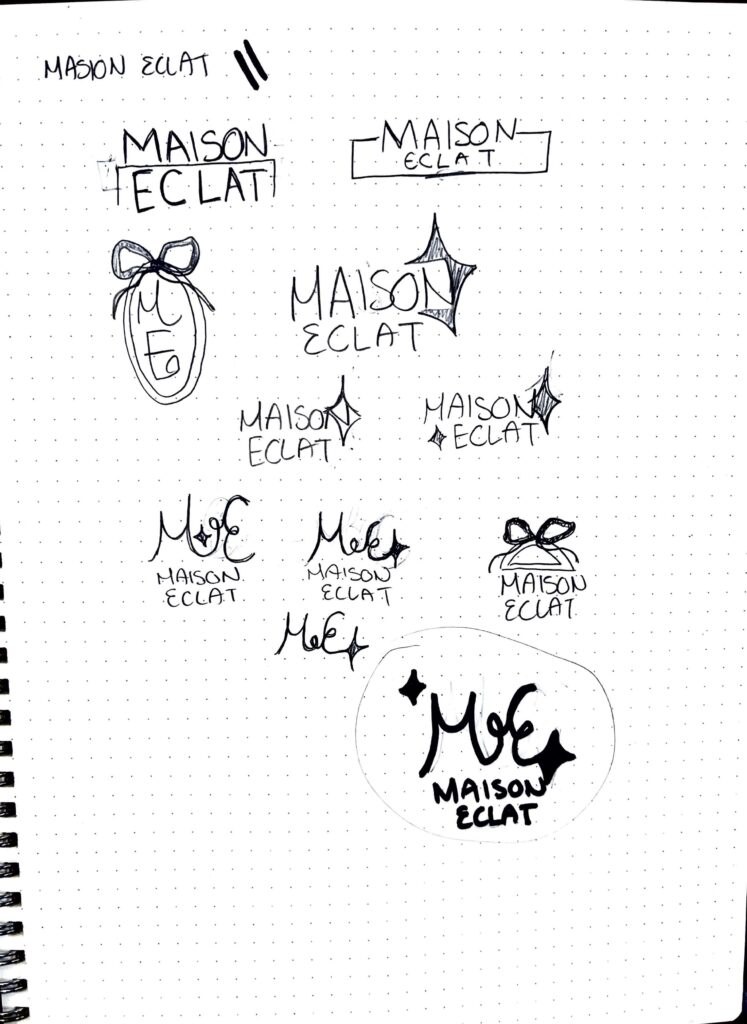 MASION ECLAT
MAISON
ECLAT
MAISON
ECLAT
M
E
MAISON
ECLAT
MAISON
ECLAT
MAISON
ECLAT
ME
MAISON
ECLAT
ME
MAISON
ECLAT
MAISON
ECLAT
ME
ME
MAISON
ECLAT